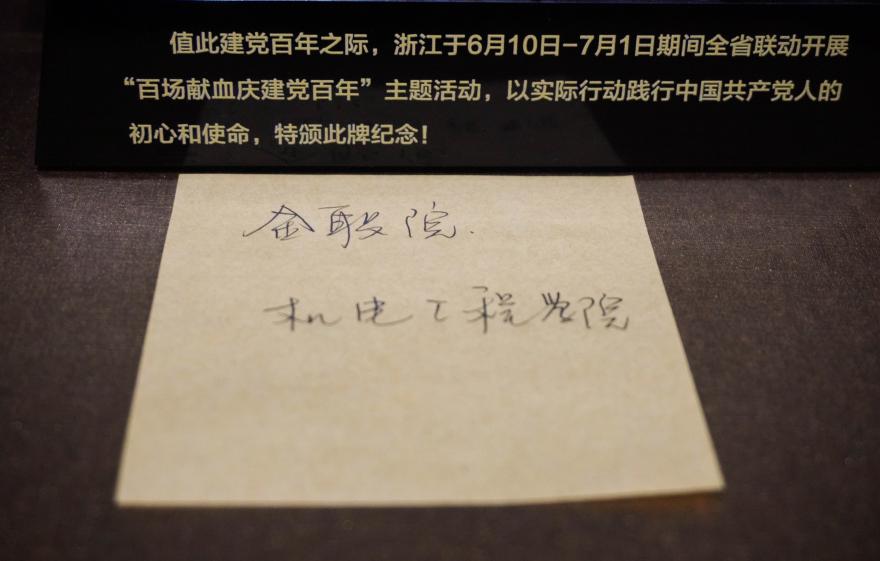 值此建党百年之际，浙江于6月10日-7月1日期间全省联动开展
“百场献血庆建党百年”主题活动，以实际行动践行中国共产党人的
初心和使命，特颁此牌纪念！
金职院.
机电工程学院